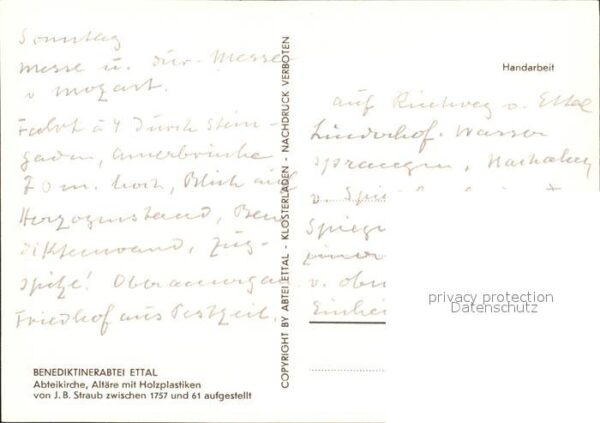 Sonntag
Messe u. Messe
v Mozart.
Fahrt ü durch Stein-
gaden,
70 m. hoch, Blick auf
Herzogenstand, Bene
diktenwand, Zug-
spitze! Oberammergau
Friedhof aus Pestzeit.
BENEDIKTINERABTEI ETTAL
Abteikirche, Altäre mit Holzplastiken
von J. B. Straub zwischen 1757 und 61 aufgestellt
COPYRIGHT BY ABTEI ETTAL - KLOSTERLADEN - NACHDRUCK VERBOTEN
Handarbeit
auf Rückweg v. Ettal
Linderhof. Wasser
v.
Spieg
v. oben
Einhei
privacy protection
Datenschutz